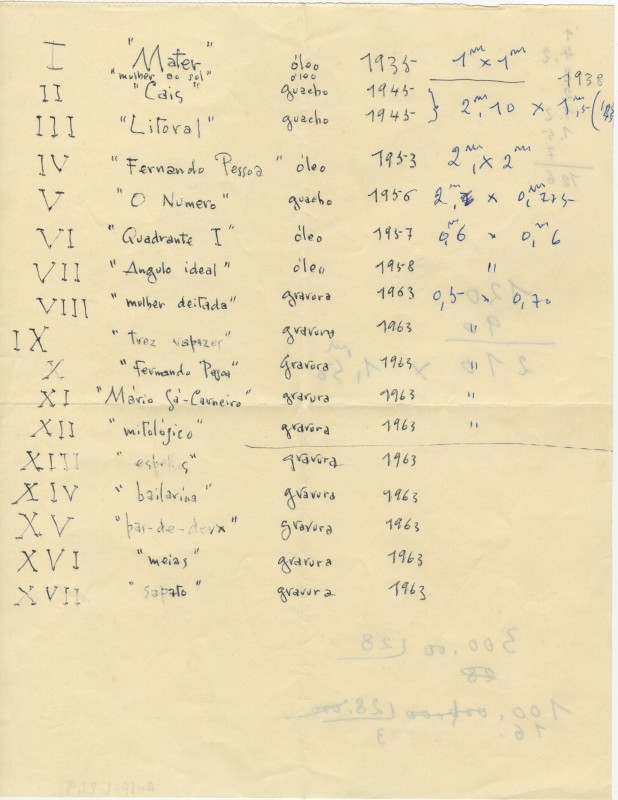 I "Mater" óleo 1935 1m x 1m
"mulher ao sol" óleo 1938
II "Cais" guacho 1945
III "Litoral" guacho 1945 } 2,m10 x 1,m5
IV "Fernando Pessoa" óleo 1953 2m, x 2m
V "O Numero" guacho 1956 2,m x 0,m775
VI "Quadrante I" óleo 1957 0,m6 x 0,m6
VII "Angulo ideal" óleo 1958 "
VIII "mulher deitada" gravora 1963 0,5 x 0,70
IX "trez vapazes" gravora 1963 "
X "Fernando Pessoa" Gravora 1963 "
XI "Mário Sá-Carneiro" gravura 1963 "
XII "mitológico" gravora 1963 "
XIII gravura 1963
XIV "bailarina" gravura 1963
XV "pas-de-deux" gravora 1963
XVI "meias" gravora 1963
XVII "sapato" gravura 1963